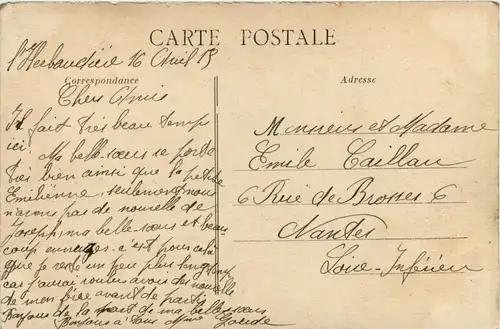 CARTE POSTALE
l'Herbaudière 16 Avril 15
Correspondance
Adresse
Chers Amis
Il fait très beau temps
ici. Ma belle-soeur se porte
très bien ainsi que la petite
Emilienne, seulement nous
n'avons pas de nouvelle de
Joseph, ma belle soeur est beau
coup ennuyée. c'est pour cela
que je reste un peu plus longtemps
car j'aurai voulu avoir des nouvelle
de mon frère avant de partir
Bonjour de la part de ma belle-soeur
Bonjour à tous
Monsieur et Madame
Emile Taillau
6 Rue de Brosses 6
Nantes
Loire-Inférieu